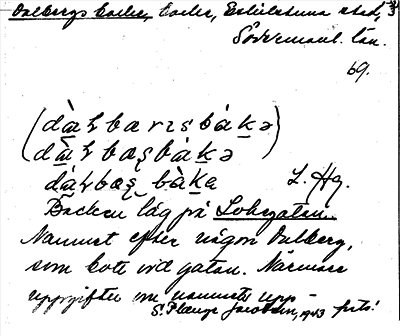 Dalbergs backe, backe, Eskilstuna stad, 3/3
Södermanl. län.
69.
(dàɦbærɪsbàkə)
(dàɦbæʂbàkə)
dáɦbæʂ bàka L. Hg.
Backen låg på Lohegatan.
Namnet efter någon Dalberg,
som bott vid gatan. Närmare
uppgifter om namnets upp-
S. Pläenge Jacobson, 1943 forts!